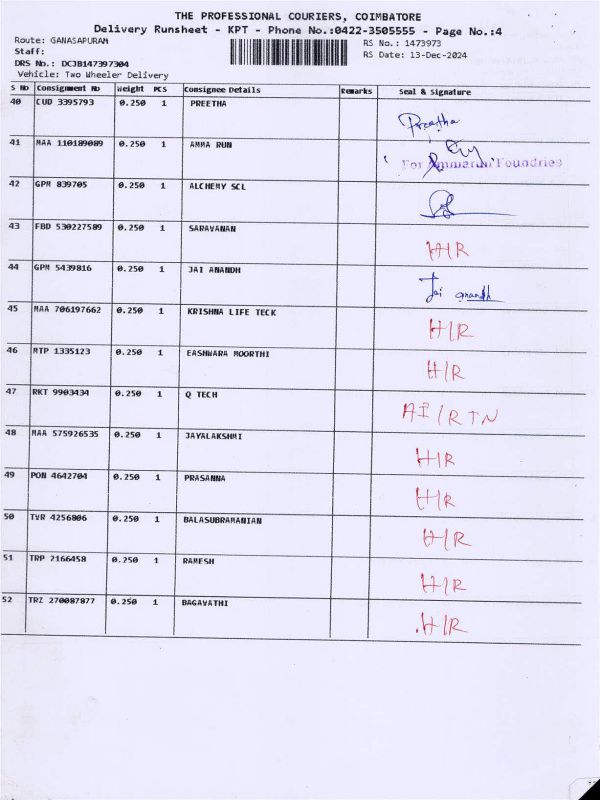 THE PROFESSIONAL COURIERS, COIMBATORE
Delivery Runsheet - KPT - Phone No.:0422-3505555 - Page No.:4
Route: GANASAPURAM RS No.: 1473973
Staff: RS Date: 13-Dec-2024
DRS No.: DCJB147397304
Vehicle: Two Wheeler Delivery
S No Consignment No Weight PCS Consignee Details Remarks Seal & Signature
40 CUD 3395793 0.250 1 PREETHA Preetha
41 MAA 110189089 0.250 1 AMMA RUN
For Ammarun Foundries
42 GPM 839705 0.250 1 ALCHEMY SCL
43 FBD 530227589 0.250 1 SARAVANAN H/R
44 GPM 5439816 0.250 1 JAI ANANDH Jai Anandh
45 MAA 706197662 0.250 1 KRISHNA LIFE TECK H/R
46 MTP 1335123 0.250 1 EASHWARA MOORTHI H/R
47 RKT 9903434 0.250 1 Q TECH AI/RTN
48 MAA 575926535 0.250 1 JAYALAKSHMI H/R
49 PON 4642704 0.250 1 PRASANNA H/R
50 TVR 4256806 0.250 1 BALASUBRAMANIAN H/R
51 TRP 2166458 0.250 1 RAMESH H/R
52 TRZ 270087877 0.250 1 BAGAVATHI H/R